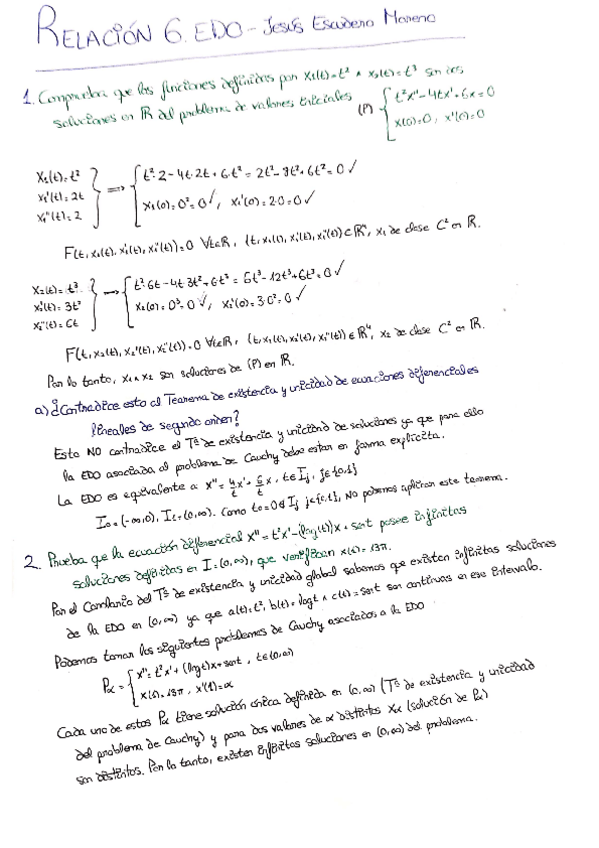 RELACIÓN 6. EDO - Jesús Escudero Moreno
1. Comprueba que las funciones definidas por x₁(t)=t² ∧ x₂(t)=t³ son dos
soluciones en ℝ del problema de valores iniciales (P) { t²x''-4tx'+6x=0
x(0)=0, x'(0)=0
x₁(t)=t²
x₁'(t)=2t
x₁''(t)=2
⟹ { t²·2-4t·2t+6·t² = 2t²-8t²+6t²=0 ✓
x₁(0)=0²=0 ✓, x₁'(0)=2·0=0 ✓
F(t, x₁(t), x₁'(t), x₁''(t))=0 ∀t∈ℝ, (t, x₁(t), x₁'(t), x₁''(t))∈ℝ⁴, x₁ de clase C² en ℝ.
x₂(t)=t³
x₂'(t)=3t²
x₂''(t)=6t
⟶ { t²·6t-4t·3t²+6t³ = 6t³-12t³+6t³=0 ✓
x₂(0)=0³=0 ✓, x₂'(0)=3·0²=0 ✓
F(t, x₂(t), x₂'(t), x₂''(t))=0 ∀t∈ℝ, (t, x₂(t), x₂'(t), x₂''(t))∈ℝ⁴, x₂ de clase C² en ℝ.
Por lo tanto, x₁ ∧ x₂ son soluciones de (P) en ℝ.
a) ¿Contradice esto al Teorema de existencia y unicidad de ecuaciones diferenciales
lineales de segundo orden?
Esto NO contradice el Tª de existencia y unicidad de soluciones ya que para ello
la EDO asociada al problema de Cauchy debe estar en forma explícita.
La EDO es equivalente a x''= 4/t x' - 6/t x, t∈Iⱼ, j∈{0,1}
I₀=(-∞,0), I₁=(0,∞). Como t₀=0∉Iⱼ j∈{0,1}, NO podemos aplicar este teorema.
2. Prueba que la ecuación diferencial x''=t²x'-(log(t))x+sent posee infinitas
soluciones definidas en I=(0,∞), que verifican x(1)=13π.
Por el Corolario del Tª de existencia y unicidad global sabemos que existen infinitas soluciones
de la EDO en (0,∞) ya que a(t)=t², b(t)=logt ∧ c(t)=sent son continuas en ese intervalo.
Podemos tomar los siguientes problemas de Cauchy asociados a la EDO
Pα = { x''=t²x'+(logt)x+sent, t∈(0,∞)
x(1)=13π, x'(1)=α
Cada uno de estos Pα tiene solución única definida en (0,∞) (Tª de existencia y unicidad
del problema de Cauchy) y para dos valores de α distintos Xα (solución de Pα)
son distintos. Por lo tanto, existen infinitas soluciones en (0,∞) del problema.